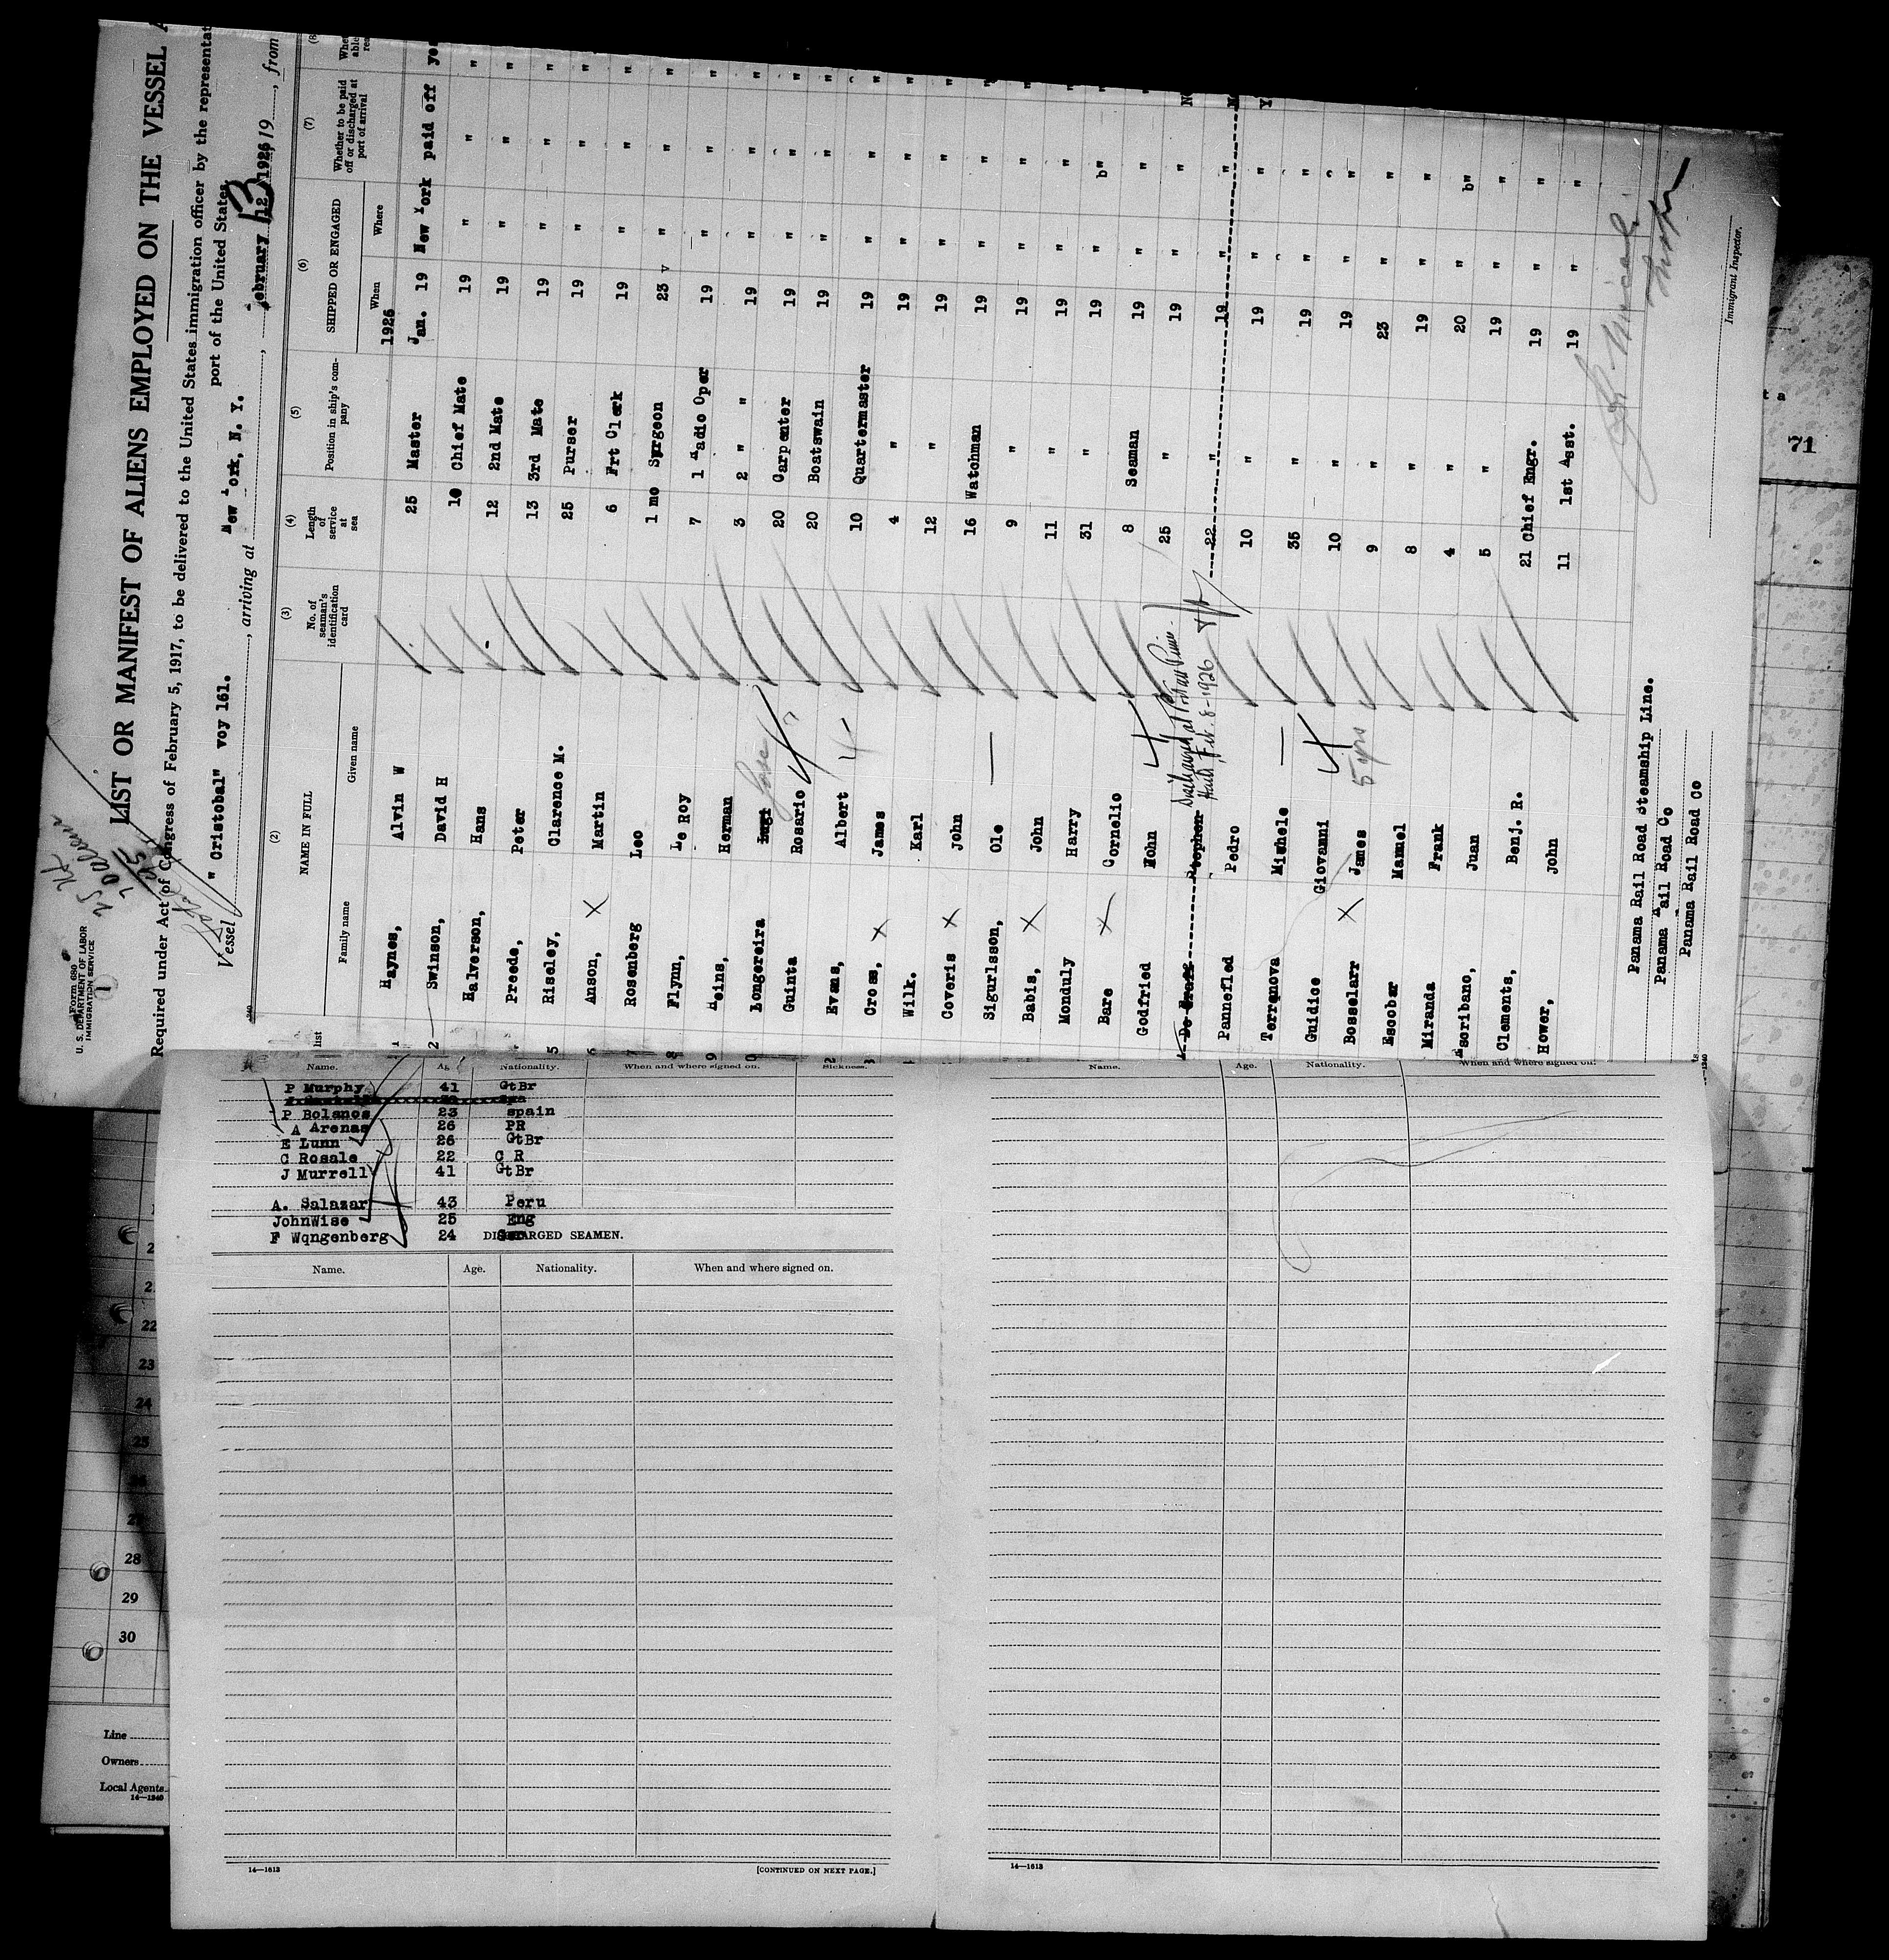 Form 680
U. S. DEPARTMENT OF LABOR
IMMIGRATION SERVICE
LIST OR MANIFEST OF ALIENS EMPLOYED ON THE VESSEL
Required under Act of Congress of February 5, 1917, to be delivered to the United States immigration officer by the
port of the United States
Vessel " Cristobal" voy 161. , arriving at New York, N. Y. , February 12, 1926 19 , from
13
(2) (3) (4) (5) (6) (7)
list
NAME IN FULL
Family name Given name
No. of seaman's identification card
Length of service at sea
Position in ship's company
SHIPPED OR ENGAGED
When Where
Whether to be paid off or discharged at port of arrival
1926
Haynes, Alvin W 25 Master Jan. 19 New York paid off
2 Swinson, David H 10 Chief Mate 19 " " "
Halverson, Hans 12 2nd Mate 19 " " "
Preede, Peter 13 3rd Mate 19 " " "
5 Riseley, Clarence M. 25 Purser 19 " " "
6 Anson, X Martin 6 Frt Clerk 19 " " "
7 Rosenberg Leo 1 mo Surgeon 23 " " "
8 Flynn, Le Roy 7 1 Radio Oper 19 " " "
9 Heins, Herman 3 2 " " 19 " " "
0 Longereira Lugi Jose 20 Carpenter 19 " " "
Guinta Rosario 20 Boatswain 19 " " "
2 Evans, Albert 10 Quartermaster 19 " " "
3 Cross, X James 4 " 19 " " "
Wilk. Karl 12 " 19 " " "
Coveris X John 16 Watchman 19 " " "
Sigurlsson, Ole 9 " 19 " " "
Babis, X John 11 " 19 " " "
Monduly Harry 31 " 19 " b" "
Bare X Cornelio 8 Seaman 19 " "
Godfried Mohn 25 " 19 " "
De Graff Stephen 22 " 19 " "
Discharged at Port au Prince
Haiti, Feb. 8-1926
Pannefied Pedro 10 " 19 " "
Terranova Michele 35 " 19 " "
Guidice Giovanni 10 " 19 " "
Bosselarr X James 5 yrs 9 " 23 " "
Escobar Manuel 8 " 19 " "
Miranda Frank 4 " 20 " b"
Ascribano, Juan 5 " 19 " "
Clements, Benj. R. 21 Chief Engr. 19 " "
Hower, John 11 1st Asst. 19 " "
Panama Rail Road Steamship Line.
Panama Rail Road Co
Panama Rail Road Co
Immigrant Inspector.
71
Name. Nationality. When and where signed on. Sickness.
P Murphy 41 GtBr
P Bolanos 23 spain
A Arenas 26 PR
E Lunn 26 GtBr
C Rosale 22 C R
J Murrell 41 GtBr
A. Salazar 43 Peru
JohnWise 25 Eng
F Wqngenberg 24
DISCHARGED SEAMEN.
Name. Age. Nationality. When and where signed on.
14—1613 [CONTINUED ON NEXT PAGE.]
Name. Age. Nationality. When and where signed on.
14—1613
22
23
24
25
28
29
30
Line
Owners
Local Agents
14—1240